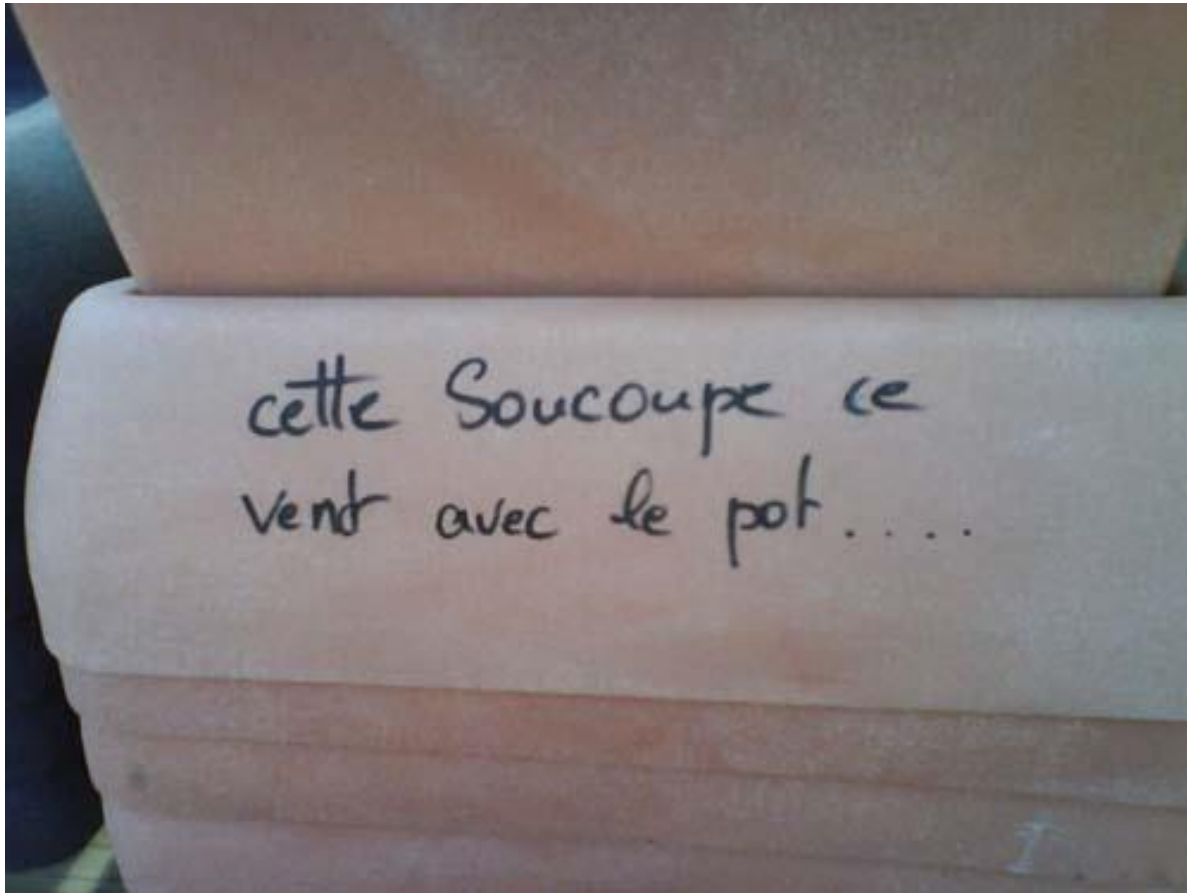 cette Soucoupe ce
vent avec le pot.....